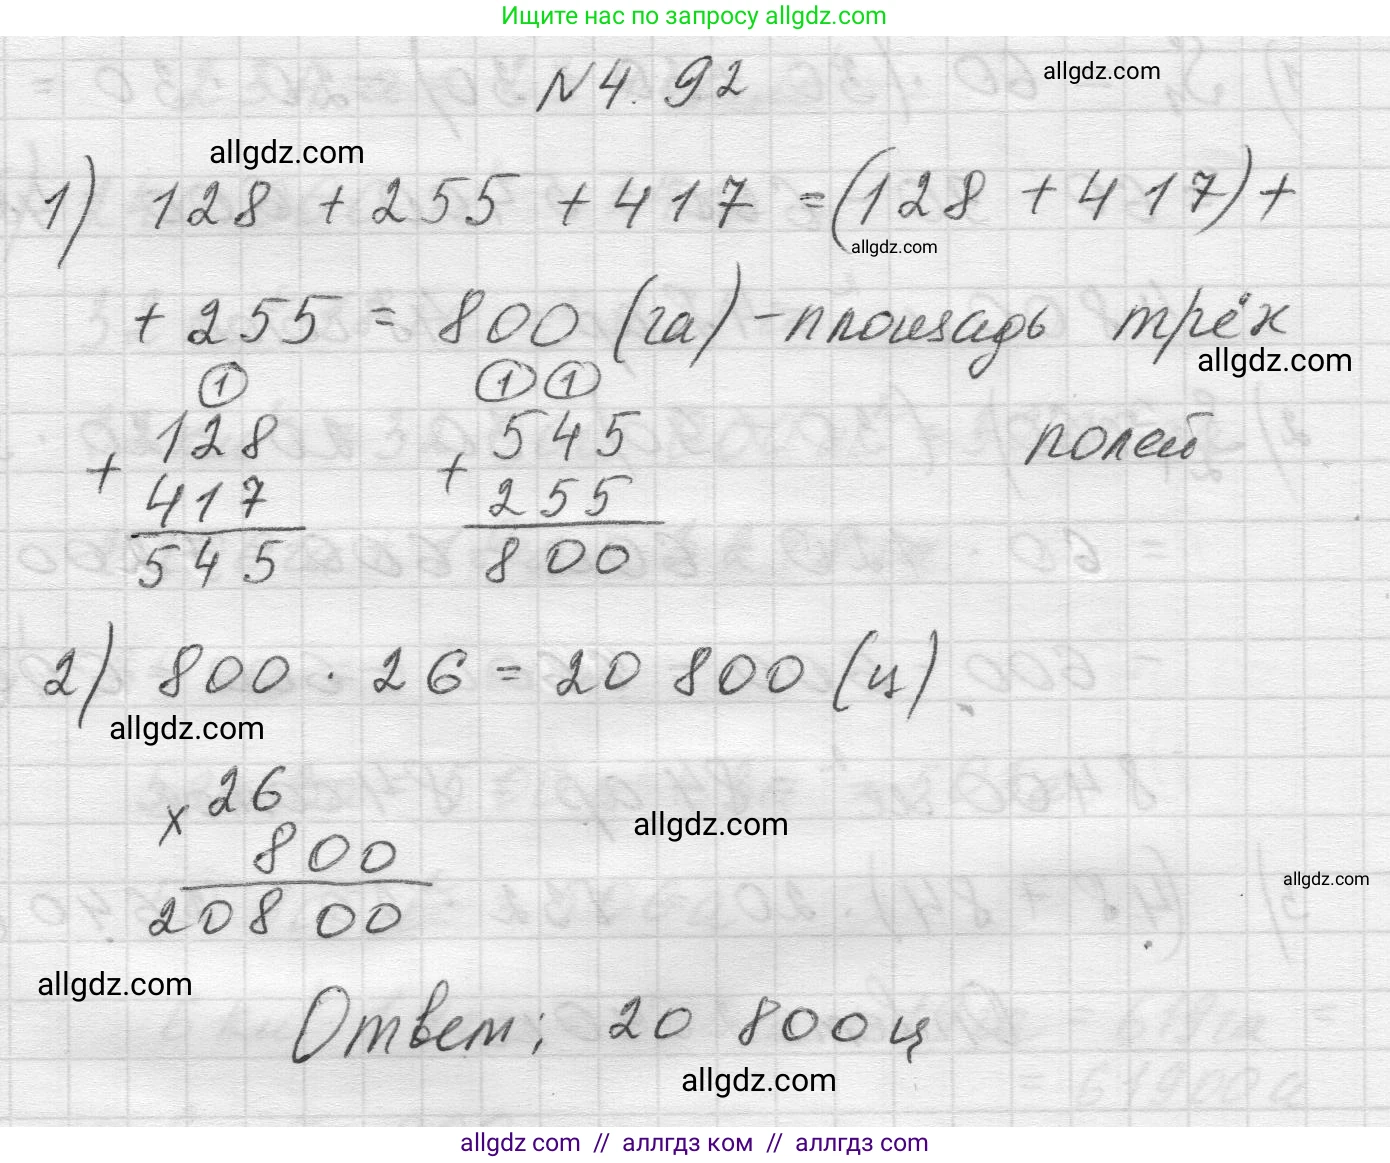 Ищите нас по запросу allgdz.com
N4.92
allgdz.com
allgdz.com
1) 128 + 255 + 417 = (128 + 417) +
allgdz.com
+ 255 = 800 (га) - площадь трёх
allgdz.com
полей
1 1 1
128 545
+ +
417 255
545 800
2) 800 · 26 = 20 800 (ц)
allgdz.com
26
x
800
20800
allgdz.com
allgdz.com
allgdz.com
Ответ: 20 800 ц
allgdz.com
allgdz.com // аллгдз ком // allgdz.com